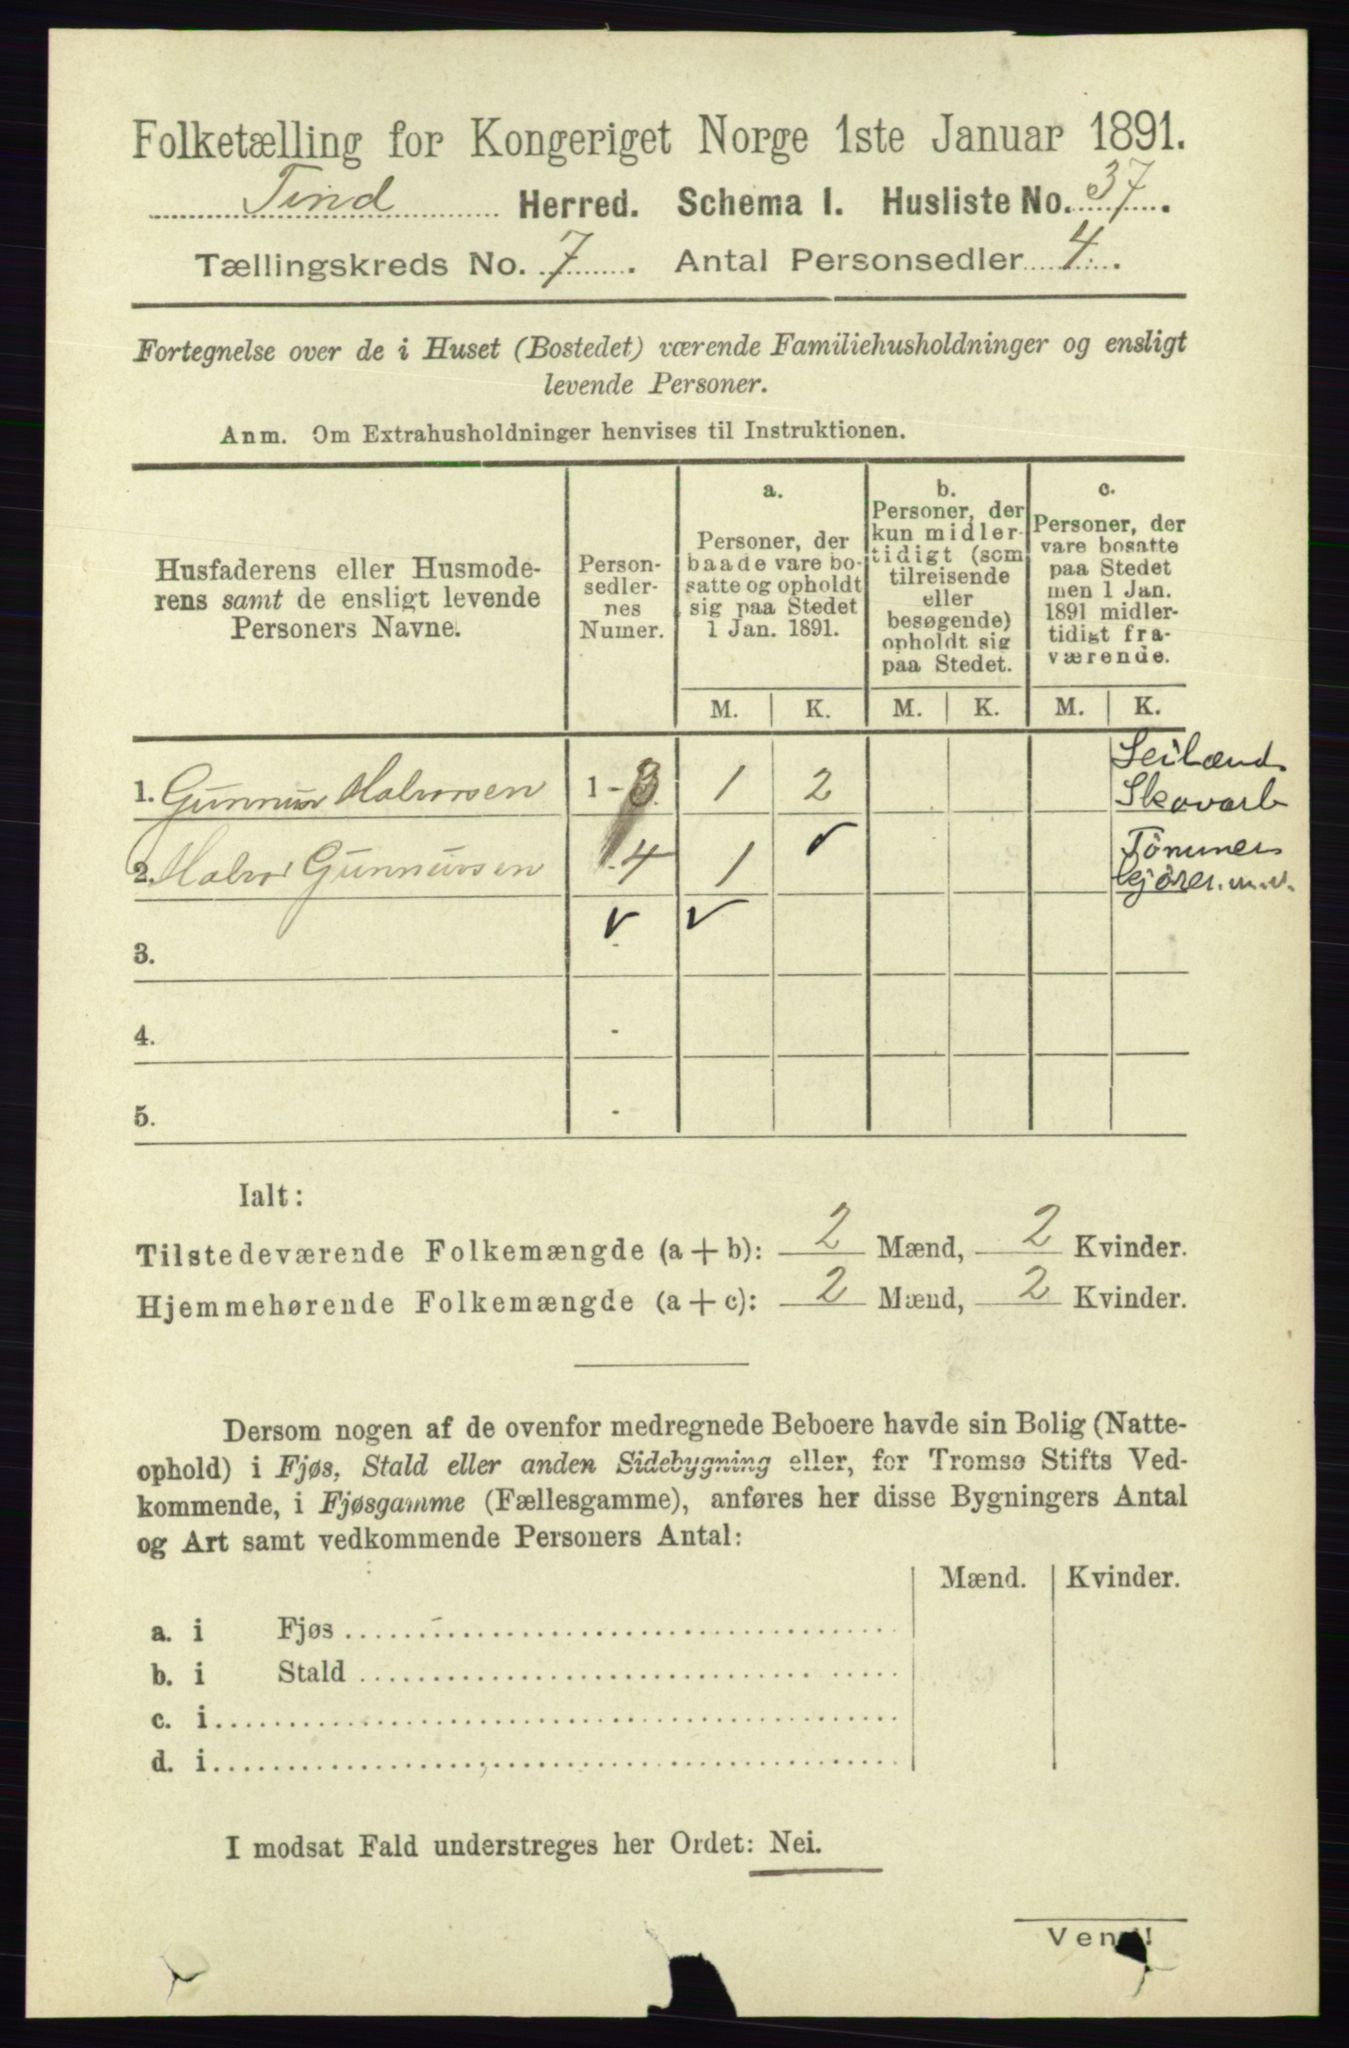 Folketælling for Kongeriget Norge 1ste Januar 1891.
Tind Herred. Schema I. Husliste No. 37.
Tællingskreds No. 7. Antal Personsedler 4.
Fortegnelse over de i Huset (Bostedet) værende Familiehusholdninger og ensligt
levende Personer.
Anm. Om Extrahusholdninger henvises til Instruktionen.
Husfaderens eller Husmode-
rens samt de ensligt levende
Personers Navne.
Person-
sedler-
nes
Numer.
a.
Personer, der
baade vare bo-
satte og opholdt
sig paa Stedet
1 Jan. 1891.
b.
Personer, der
kun midler-
tidigt (som
tilreisende
eller
besøgende)
opholdt sig
paa Stedet.
c.
Personer, der
vare bosatte
paa Stedet
men 1 Jan.
1891 midler-
tidigt fra-
værende.
M. K. M. K. M. K.
1. Gunnur Halvorsen 1 - 3 1 2
Skovarb
2. Halvor Gunnursen - 4 1 ✓
Tömmer
kjörer. m.v.
3. ✓ ✓
4. -
5. -
Ialt:
Tilstedeværende Folkemængde (a + b): 2 Mænd, 2 Kvinder.
Hjemmehørende Folkemængde (a + c): 2 Mænd, 2 Kvinder.
Dersom nogen af de ovenfor medregnede Beboere havde sin Bolig (Natte-
ophold) i Fjøs, Stald eller anden Sidebygning eller, for Tromsø Stifts Ved-
kommende, i Fjøsgamme (Fællesgamme), anføres her disse Bygningers Antal
og Art samt vedkommende Personers Antal:
Mænd. Kvinder.
a. i Fjøs
b. i Stald
c. i
d. i
I modsat Fald understreges her Ordet: Nei.